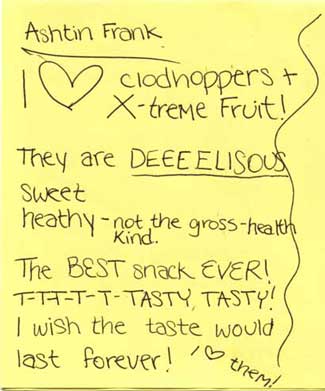 Ashtin Frank
I ♡ clodhoppers +
X-treme Fruit!
They are DEEEELISOUS
sweet
heathy - not the gross-health
kind.
The BEST snack EVER!
T-T-T-T-T-TASTY, TASTY!
I wish the taste would
last forever! I ♡ them!